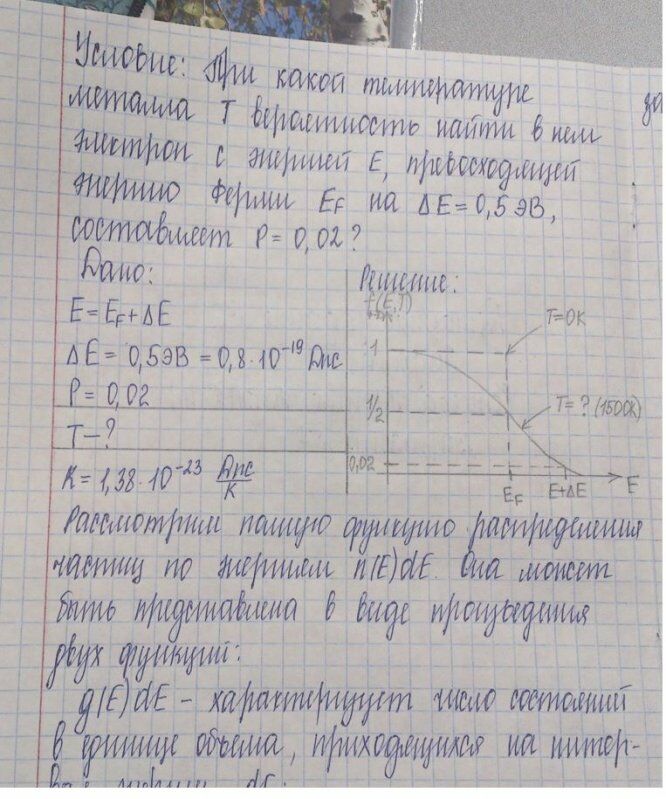 Условие: При какой температуре
металла T вероятность найти в нем
электрон с энергией E, превосходящей
энергию Ферми E_F на ΔE = 0,5 эВ,
составляет P = 0,02?
Дано:
E = E_F + ΔE
ΔE = 0,5 эВ = 0,8·10^-19 Дж
P = 0,02
T - ?
K = 1,38·10^-23 Дж/К
Решение:
f(E,T)
T=0K
1
1/2
T=? (1500K)
0,02
E_F
E+ΔE
E
Рассмотрим полную функцию распределения
частиц по энергиям n(E)dE. Она может
быть представлена в виде произведения
двух функций:
g(E)dE - характеризует число состояний
в единице объема, приходящихся на интер-